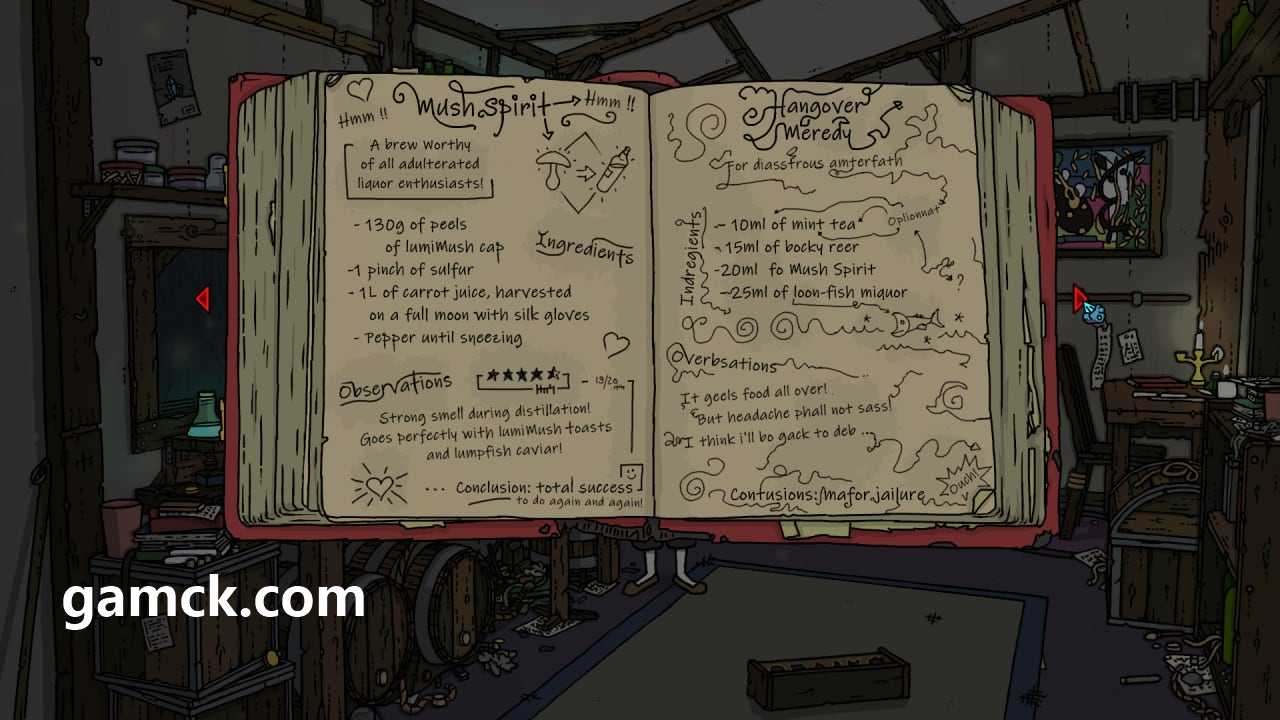 Hmm !!
Mush Spirit
Hmm !!
A brew worthy
of all adulterated
liquor enthusiasts!
- 130g of peels
of lumiMush cap
Ingredients
-1 pinch of sulfur
- 1L of carrot juice, harvested
on a full moon with silk gloves
- Pepper until sneezing
Observations
- 19/20
Strong smell during distillation!
Goes perfectly with lumiMush toasts
and lumpfish caviar!
... Conclusion: total success
to do again and again!
Hangover
Meredy
For diasstrous amterfath
Indregients
- 10ml of mint tea
Oplionnat
?
- 15ml of bocky reer
-20ml fo Mush Spirit
-25ml of loon-fish miquor
Overbsations
It geels food all over!
But headache phall not sass!
I think i'll bo gack to deb ...
Ouch!
Contusions: mafor jailure
gamck.com